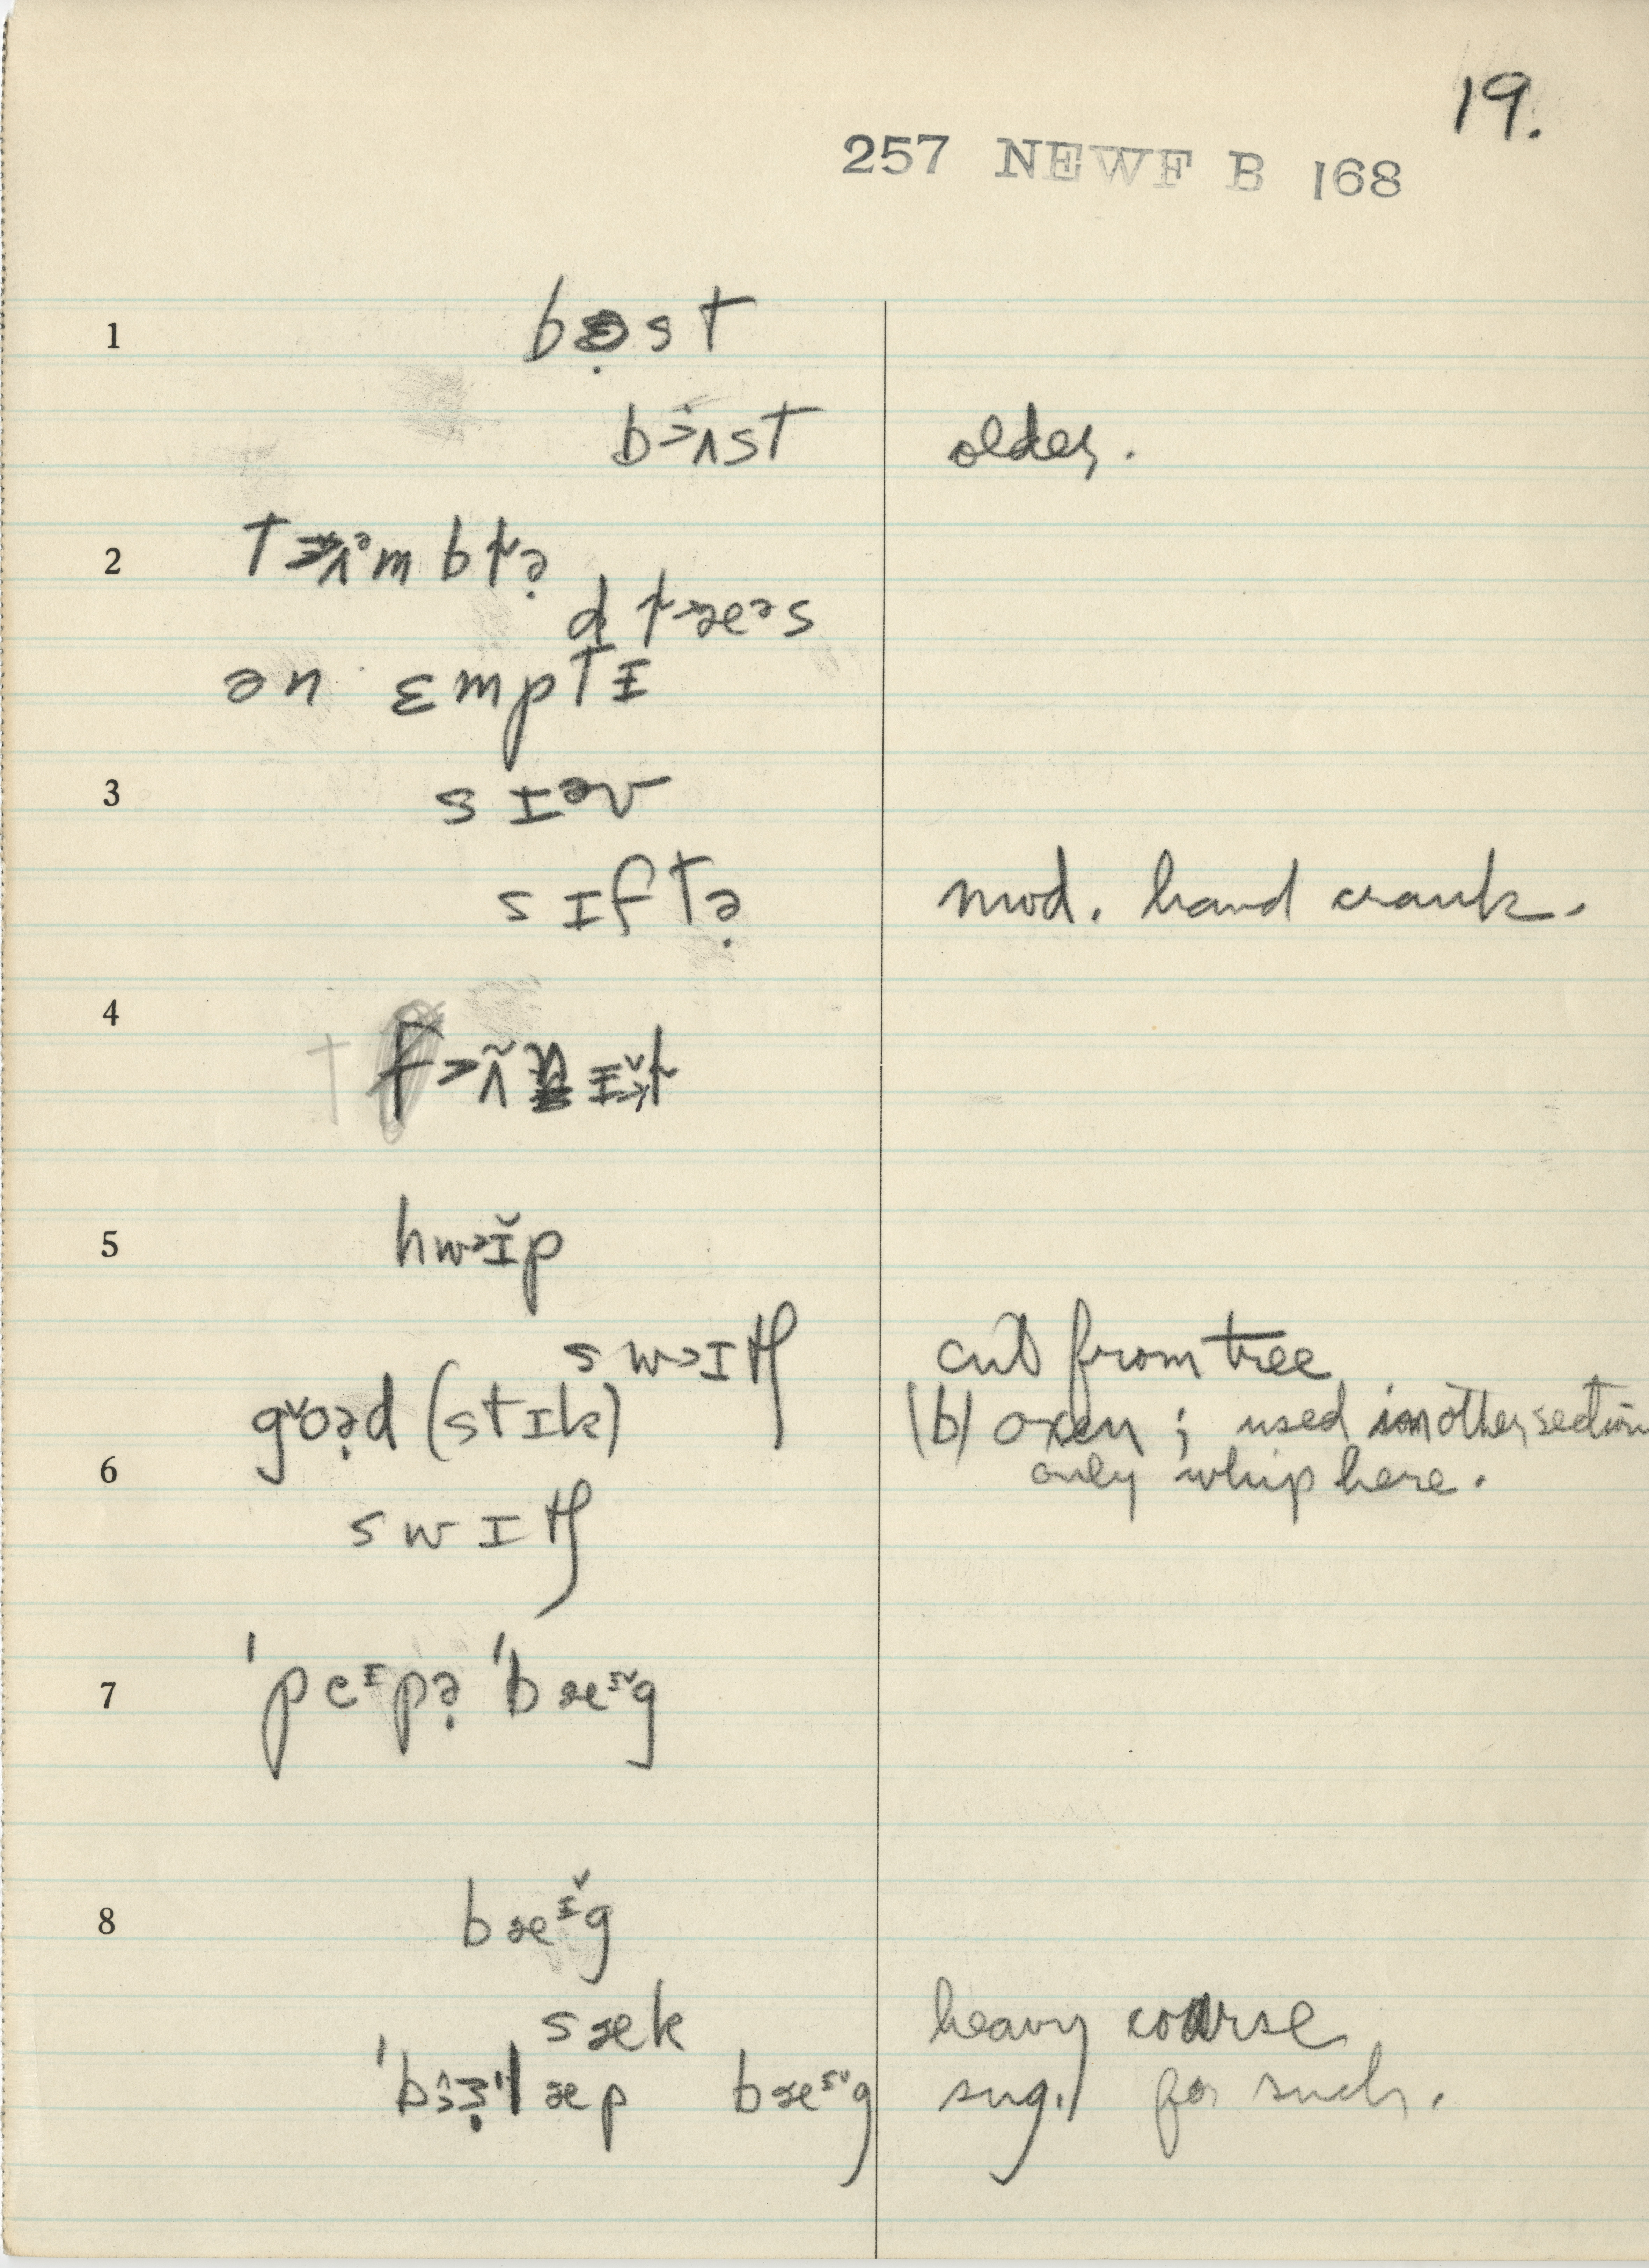 19.
257 NEWF B 168
1 bə̣st
b>ʌst older.
2
ən ɛmptɪ
3 sɪᵊv
sɪftə̣ mod. hand crank.
4
5 hw>ɪ̆p
sw>ɪtʃ cut from tree
goə̣d (stɪk) (b) oxen ; used in other section
6 only whip here.
swɪtʃ
7 'peᶦpə̣ 'bæᶦ̆g
8 bæᶦ̆g
sæk heavy coarse
bæᶦ̆g sug. for such.